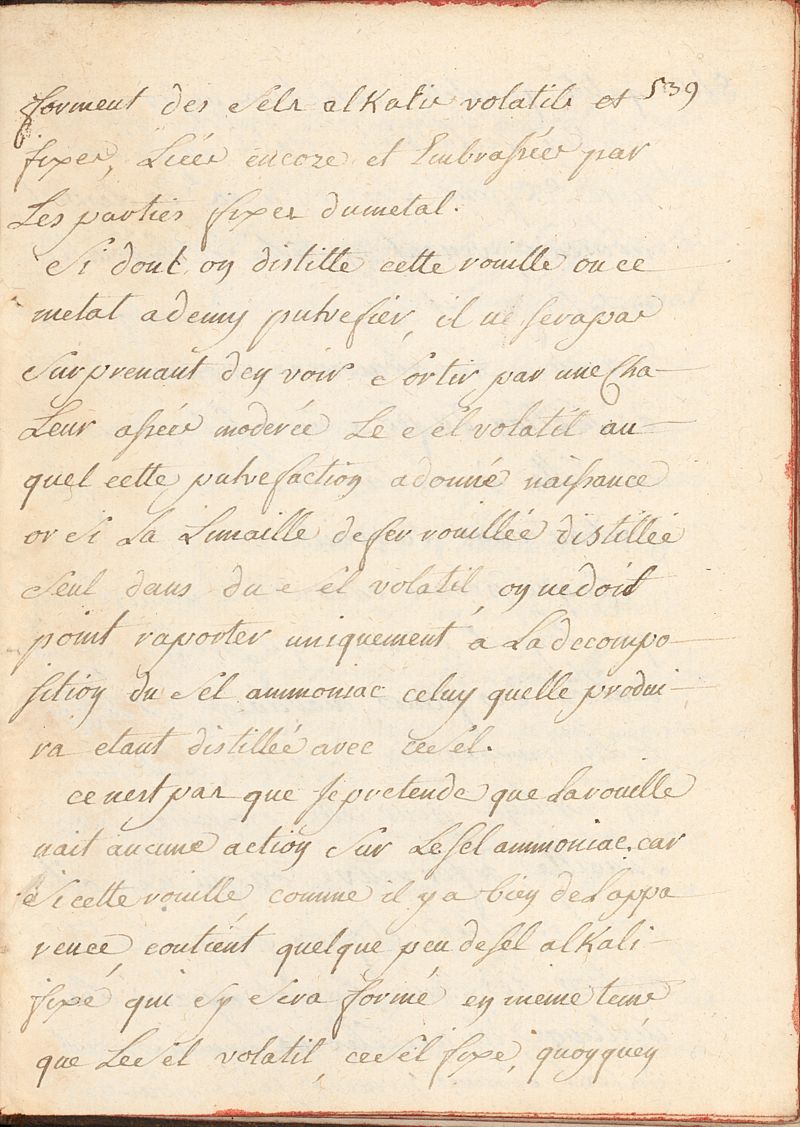 forment des Sels alKalis volatils et 539
fixes, Liées encore et Embrassées par
Les parties fixes dumetal.
Si dont on distille cette rouille ou ce
metal ademy putrefier, il ne serapas
Surprenant den voir Sortir par une Cha-
Leur assée moderée Le Sel volatil au-
quel cette putrefaction adonné naissance
or Si La Limaille defer rouillée distillée
Seul dans du Sel volatil, on nedoit
point raporter uniquement á Ladecompo-
sition du Sel ammoniac celuy quelle produi-
ra etant distillée avec cesel.
ce nest pas que Jepretende que Larouille
nait aucune action Sur Lesel ammoniac, car
Si cette rouille comme il y a bien deLappa
rence, contient quelque peu desel alKali-
fixé qui Sy Sera formé en meme tems
que LeSel volatil, ceSel fixe, quoyquén